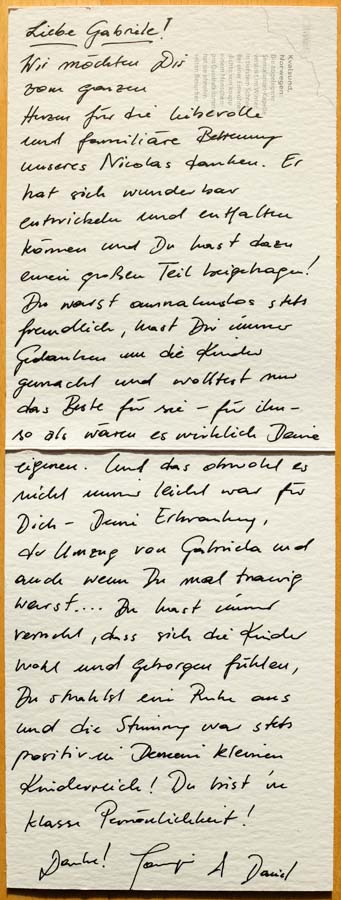 Liebe Gabriele!
Wir möchten Dir
vom ganzen
Herzen für die liebevolle
und familiäre Betreuung
unseres Nicolas danken. Er
hat sich wunderbar
entwickeln und entfalten
können und Du hast dazu
einen großen Teil beigetragen!
Du warst ausnahmslos stets
freundlich, hast Dir immer
Gedanken um die Kinder
gemacht und wolltest nur
das Beste für sie – für ihn –
so als wären es wirklich Deine
eigenen. Und das obwohl es
nicht immer leicht war für
Dich – Deine Erkrankung,
der Umzug von Gabriela und
auch wenn Du mal traurig
warst.... Du hast immer
versucht, dass sich die Kinder
wohl und geborgen fühlen,
Du strahlst eine Ruhe aus
und die Stimmung war stets
positiv in Deinem kleinen
Kinderreich! Du bist 'ne
klasse Persönlichkeit!
Danke! A Daniel
Kvalsund,
Norwegen: